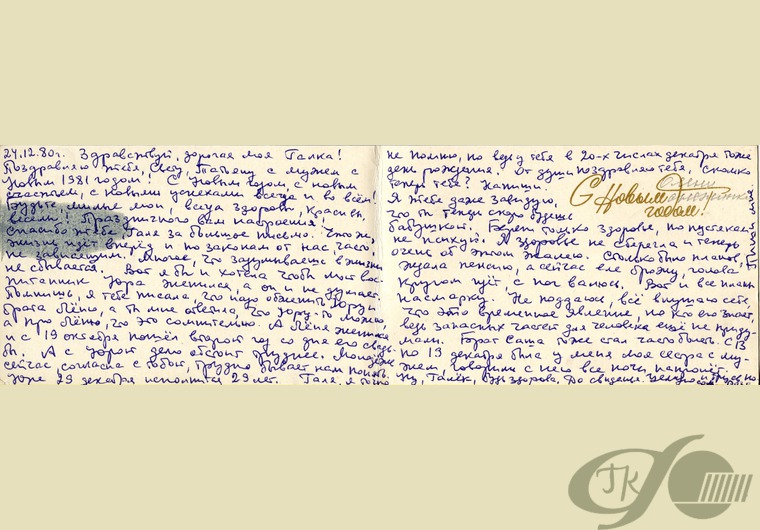 24.12.80г. Здравствуй, дорогая моя Галка!
Поздравляю тебя, Свету, Татьяну с мужем с
Новым 1981 годом! С новым годом, с новым
счастьем, с новыми успехами всегда и во всём!
Будьте милые мои, всегда здоровы, красивы,
веселы! Праздничного вам настроения!
Спасибо тебе, Галя за большое письмо. Что ж,
жизнь идёт вперёд и по законам от нас часто
не зависящим. Многое, что задумываешь в жизни
не сбывается. Вот я бы и хотела чтобы мой вос-
питанник Юра женился, а он и не думает.
Помнишь, я тебе писала, что надо обженить Юру и
брата Лёню, а ты мне ответила, что Юру-то можно
а про Лёню, что это сомнительно. А Лёня женился
и с 19 октября пошёл второй год со дня его свадь-
бы. А с Юрой дело обстоит труднее. Молодёжь
сейчас, согласна с тобой, трудно бывает нам понять.
Юре 29 декабря исполнится 29 лет. Галя, я точно
не помню, но ведь у тебя в 20-х числах декабря тоже
день рождения. От души поздравляю тебя, сколько
теперь тебе? Напиши.
Я тебе даже завидую,
что ты теперь скоро будешь
бабушкой. Береги только здоровье, по пустякам
не психуй. Я здоровье не сберегла и теперь
очень об этом жалею. Сколько было планов,
ждала пенсию, а сейчас еле брожу, голова
кругом идёт, с ног валюсь. Вот и все планы
насмарку. Не поддаюсь, всё внушаю себе,
что это временное явление, но кто его знает,
ведь запасных частей для человека ещё не приду-
мали. Брат Саша тоже стал часто болеть. С 13
по 19 декабря была у меня моя сестра с му-
жем, говорили с ней все ночи напролёт.
Ну, Галёк, будь здорова. До свидания. Целую
С Новым
годом!
ГК